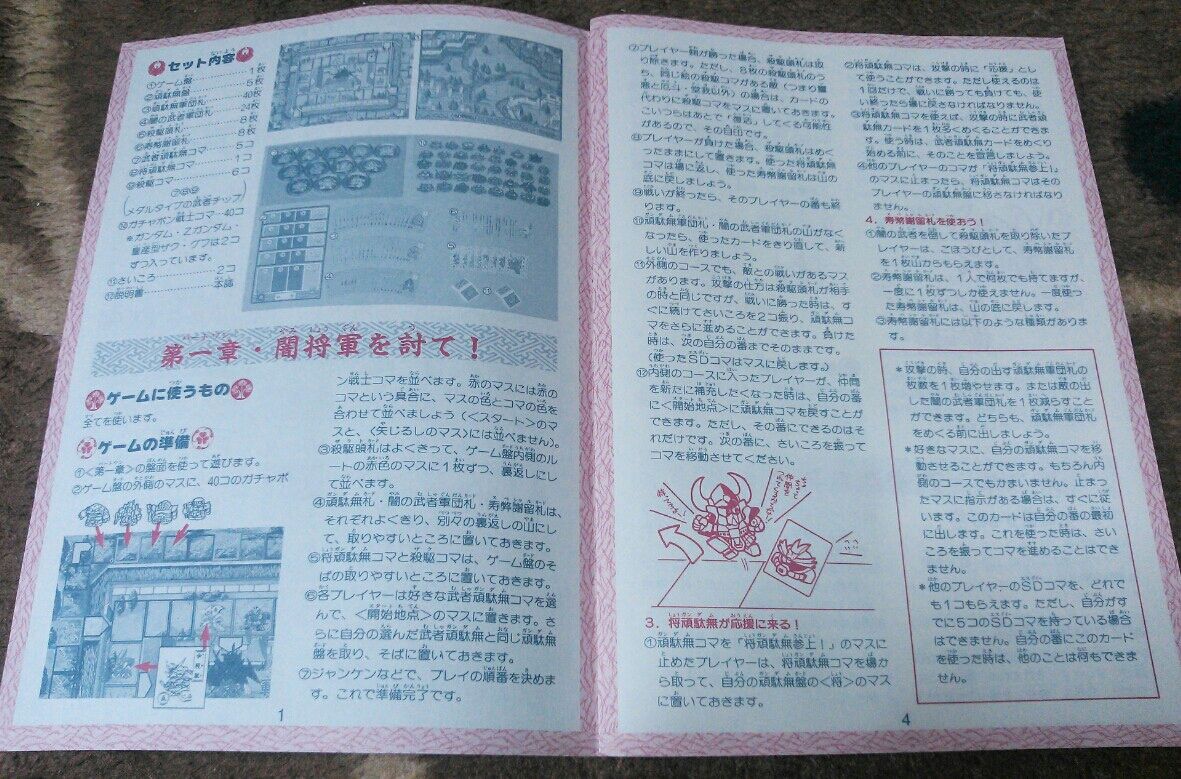 セット内容
①ゲーム盤……………1枚
②頑駄無盤……………5枚
③頑駄無軍団札………40枚
④闇の武者軍団札……24枚
⑤殺駆頭札……………8枚
⑥寿幣謝留札…………8枚
⑦武者頑駄無コマ……5コ
⑧将頑駄無コマ………1コ
⑨殺駆コマ……………6コ
⑦⑧⑨
メダルタイプの武者チップ
⑩ガチャポン戦士コマ…40コ
*ガンダム・Zガンダム・
量産型ザク・グフは2コ
ずつ入っています。
⑪さいころ……………2コ
⑫説明書………………本誌
第一章・闇将軍を討て!
ゲームに使うもの
全てを使います。
ゲームの準備
①<第一章>の盤面を使って遊びます。
②ゲーム盤の外側のマスに、40コのガチャポ
ン戦士コマを並べます。赤のマスには赤の
コマという具合に、マスの色とコマの色を
合わせて並べましょう(<スタート>のマ
<矢じるしのマス>には並べません。
③殺駆頭札はよくきって、ゲーム盤内側のル
ートの赤色のマスに1枚ずつ、裏返しにし
て並べます。
④頑駄無札・闇の武者軍団札・寿幣謝留札は、
それぞれよくきり、別々の裏返しの山にし
て、取りやすいところに置いておきます。
⑤将頑駄無コマと殺駆コマは、ゲーム盤のそ
ばの取りやすいところに置いておきます。
⑥各プレイヤーは好きな武者頑駄無コマを選
んで、<開始地点>のマスに置きます。さ
らに自分の選んだ武者頑駄無と同じ頑駄無
盤を取り、そばに置いておきます。
⑦ジャンケンなどで、プレイの順番を決めま
す。これで準備完了です。
1
⑦プレイヤー側が勝った場合、殺駆頭札は取
り除きます。ただし、8枚の殺駆頭札のう
ち、同じ絵の殺駆コマがある敵(つまり
以外)の場合は、カードの
代わりに殺駆コマをマスに置いておきます。
こいつらはあとで「復活」してくる可能性
があるので、その目印です。
⑧プレイヤーが負けた場合、殺駆頭札はめく
ったままにして置きます。使った将頑駄無
コマは場に返し、使った寿幣謝留札は山の
底に戻しましょう。
⑨戦いが終ったら、そのプレイヤーの番も終
ります。
⑩頑駄無軍団札・闇の武者軍団札の山がなく
なったら、使ったカードをきり直して、新
しい山を作りましょう。
⑪外側のコースでも、敵との戦いがあるマス
があります。攻撃の仕方は殺駆頭札が相手
の時と同じですが、戦いに勝った時は、す
ぐに続けてさいころを2コ振り、頑駄無コ
マをさらに進めることができます。負けた
時は、次の自分の番までそのままです。
(使ったSDコマはマスに戻します。)
⑫内側のコースに入ったプレイヤーが、仲間
を新たに補充したくなった時は、自分の番
に<開始地点>に頑駄無コマを戻すことが
できます。ただし、その番にできるのはそ
れだけです。次の番に、さいころを振って
コマを移動させてください。
3.将頑駄無が応援に来る!
①頑駄無コマを「将頑駄無参上!」のマスに
止めたプレイヤーは、将頑駄無コマを場か
ら取って、自分の頑駄無盤の<将>のマス
に置いておきます。
②将頑駄無コマは、攻撃の時に「応援」とし
て使うことができます。ただし使えるのは
1回だけで、戦いに勝っても負けても、使
い終ったら場に戻さなければなりません。
③将頑駄無コマを使えば、攻撃の時に武者頑
駄無カードを1枚多くめくることができま
す。使う時は、武者頑駄無カードをめくり
始める前に、そのことを宣言しましょう。
④他のプレイヤーのコマが「将頑駄無参上!」
のマスに止まったら、将頑駄無コマはその
プレイヤーの頑駄無盤に移さなければなり
ません。
4.寿幣謝留札を使おう!
①闇の武者を倒して殺駆頭札を取り除いたプ
レイヤーは、ごほうびとして、寿幣謝留札
を1枚山からもらえます。
②寿幣謝留札は、1人で何枚でも持てますが、
一度に1枚ずつしか使えません。一度使っ
た寿幣謝留札は、山の底に戻します。
③寿幣謝留札には以下のような種類がありま
す。
*攻撃の時、自分の出す頑駄無軍団札の
枚数を1枚増やせます。または敵の出
した闇の武者軍団札を1枚減らすこと
ができます。どちらも、頑駄無軍団札
をめくる前に出しましょう。
*好きなマスに、自分の頑駄無コマを移
動させることができます。もちろん内
側のコースでもかまいません。止まっ
たマスに指示がある場合は、すぐに従
います。このカードは自分の番の最初
に出します。これを使った時は、さい
ころを振ってコマを進めることはでき
ません。
*他のプレイヤーのSDコマを、どれで
も1コもらえます。ただし、自分がす
でに5コのSDコマを持っている場合
はできません。自分の番にこのカード
を使った時は、他のことは何もできま
せん。
4